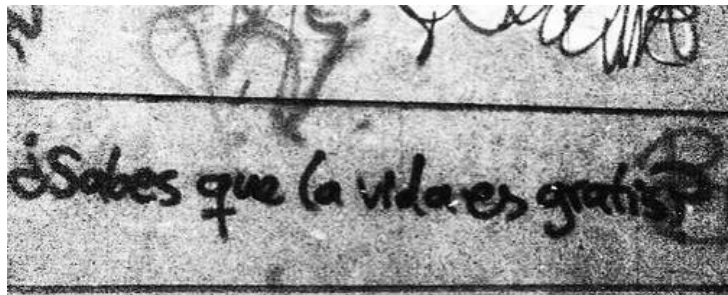 ¿Sabes que la vida es gratis?